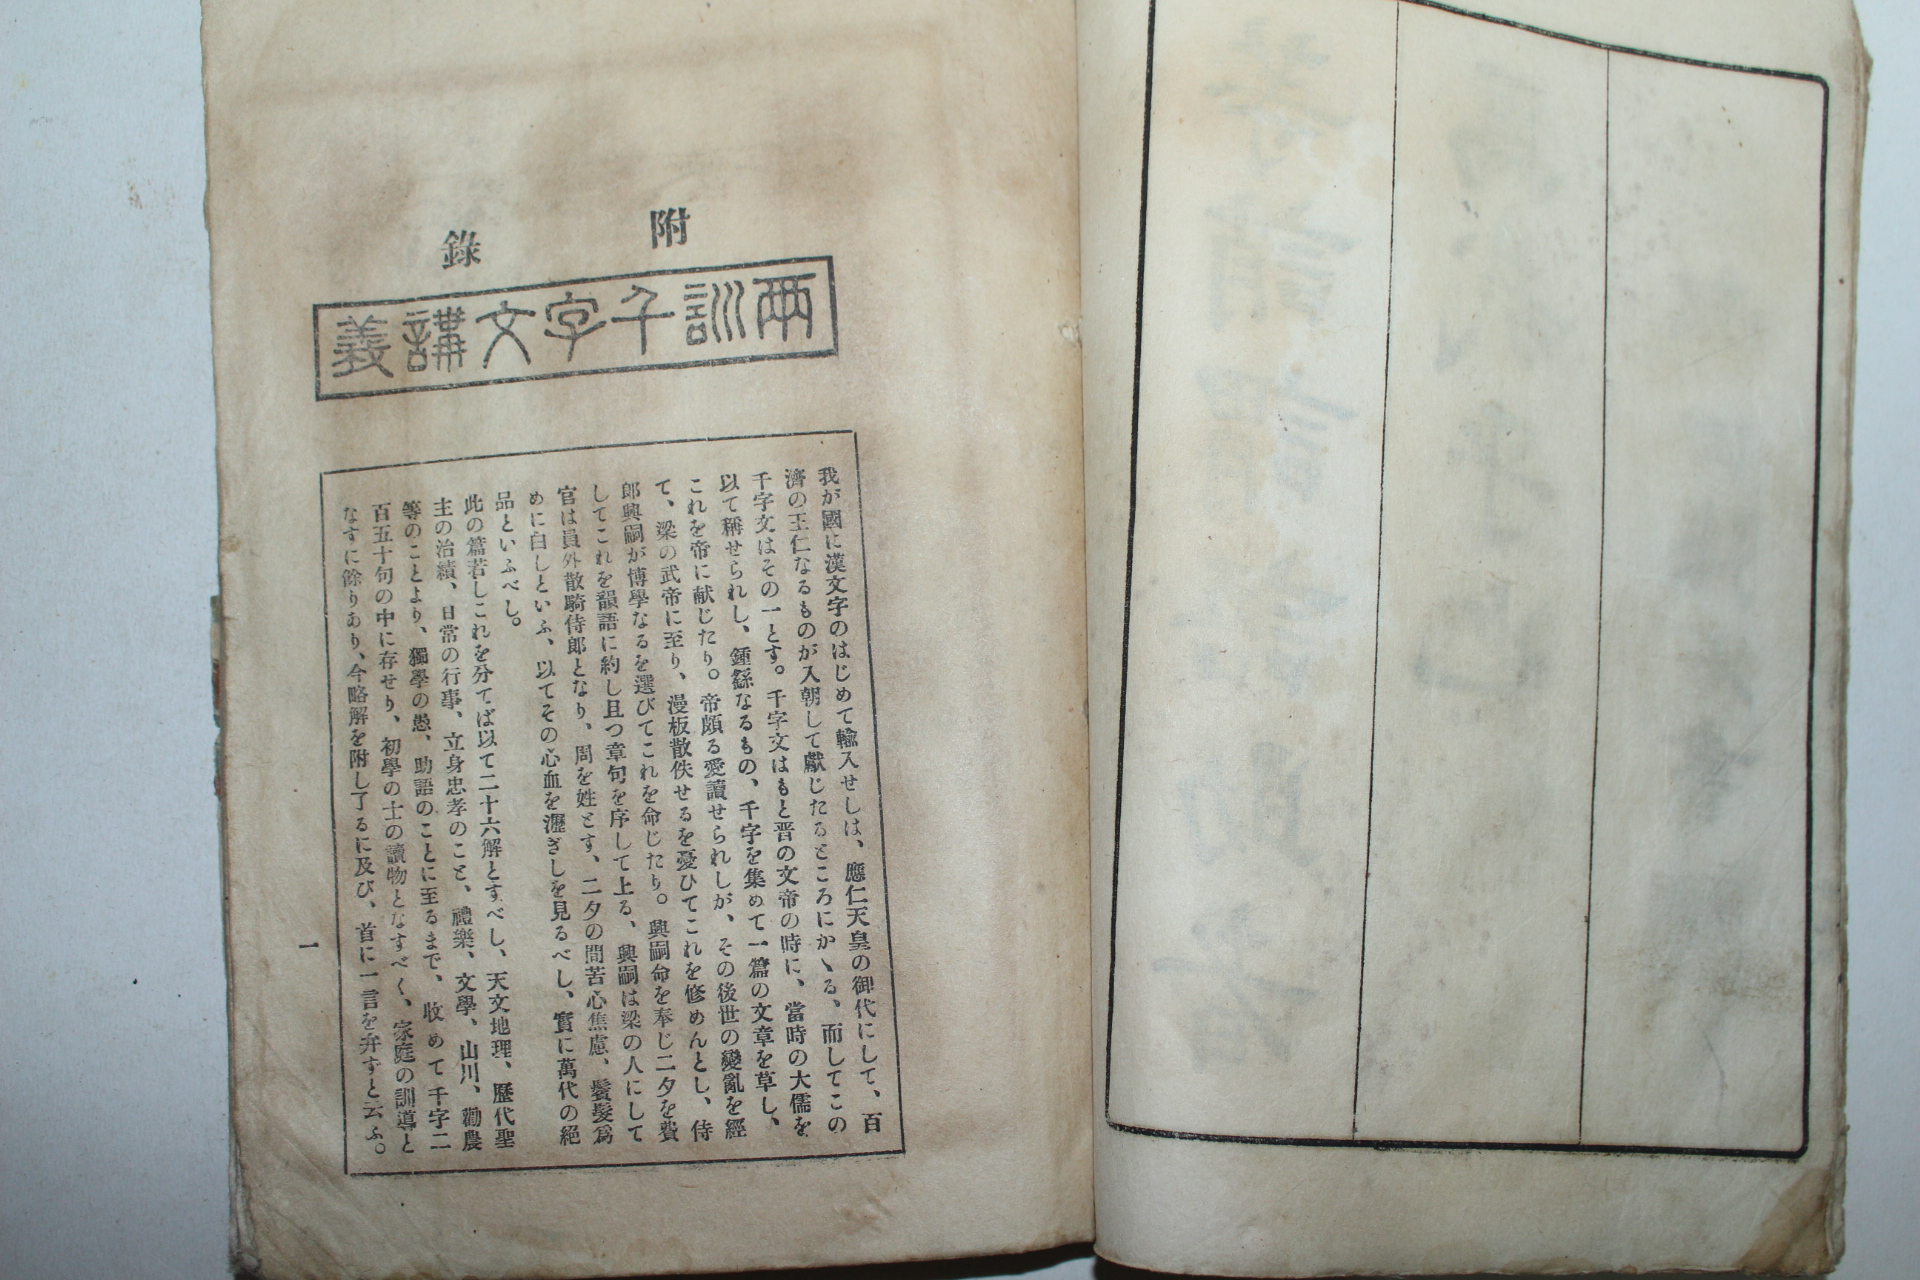 附錄
兩訓千字文講義
我が國に漢文字のはじめて輸入せしは、應仁天皇の御代にして、百
濟の王仁なるものが入朝して獻じたるところにかゝる、而してこの
千字文はその一とす。千字文はもと晋の文帝の時に、當時の大儒を
以て稱せられし、鍾繇なるもの、千字を集めて一篇の文章を草し、
これを帝に献じたり。帝頗る愛讀せられしが、その後世の變亂を經
て、梁の武帝に至り、漫板散佚せるを憂ひてこれを修めんとし、侍
郎興嗣が博學なるを選びてこれを命じたり。興嗣命を奉じ二夕を費
してこれを韻語に約し且つ章句を序して上る、興嗣は梁の人にして
官は員外散騎侍郎となり、周を姓とす、二夕の間苦心焦慮、鬢髮爲
めに白しといふ、以てその心血を瀝ぎしを見るべし、實に萬代の絕
品といふべし。
此の篇若しこれを分てば以て二十六解とすべし、天文地理、歷代聖
主の治績、日常の行事、立身忠孝のこと、禮樂、文學、山川、勸農
等のことより、獨學の愚、助語のことに至るまで、收めて千字二
百五十句の中に存せり、初學の士の讀物となすべく、家庭の訓導と
なすに餘りあり、今略解を附し了るに及び、首に一言を弁すと云ふ。
一